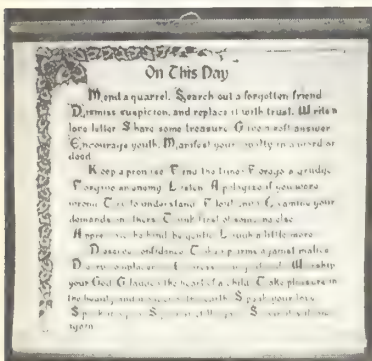 On This Day
Mend a quarrel. Search out a forgotten friend
Dismiss suspicion, and replace it with trust. Write a
love letter Share some treasure Give a soft answer
Encourage youth. Manifest your loyalty in a word or
deed
Keep a promise Find the time. Forego a grudge
Forgive an enemy. Listen. Apologize if you were
wrong Try to understand Flout envy Examine your
demands on others Think first of someone else
Appreciate be kind be gentle Laugh a little more
Deserve confidence Take up arms against malice
Decry complacency Express your gratitude Worship
your God Gladden the heart of a child Take pleasure in
the beauty and wonder of the earth Speak your love
Speak it again Speak it still again Speak it still once
again